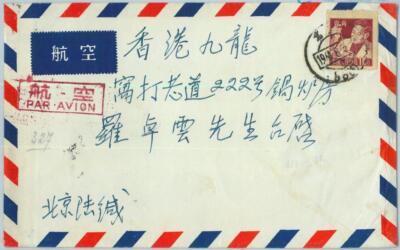 航空
香港九龍
航空
PAR AVION
窩打老道222号鍋炉房
羅卓雲先生台啓
327
北京陆缄